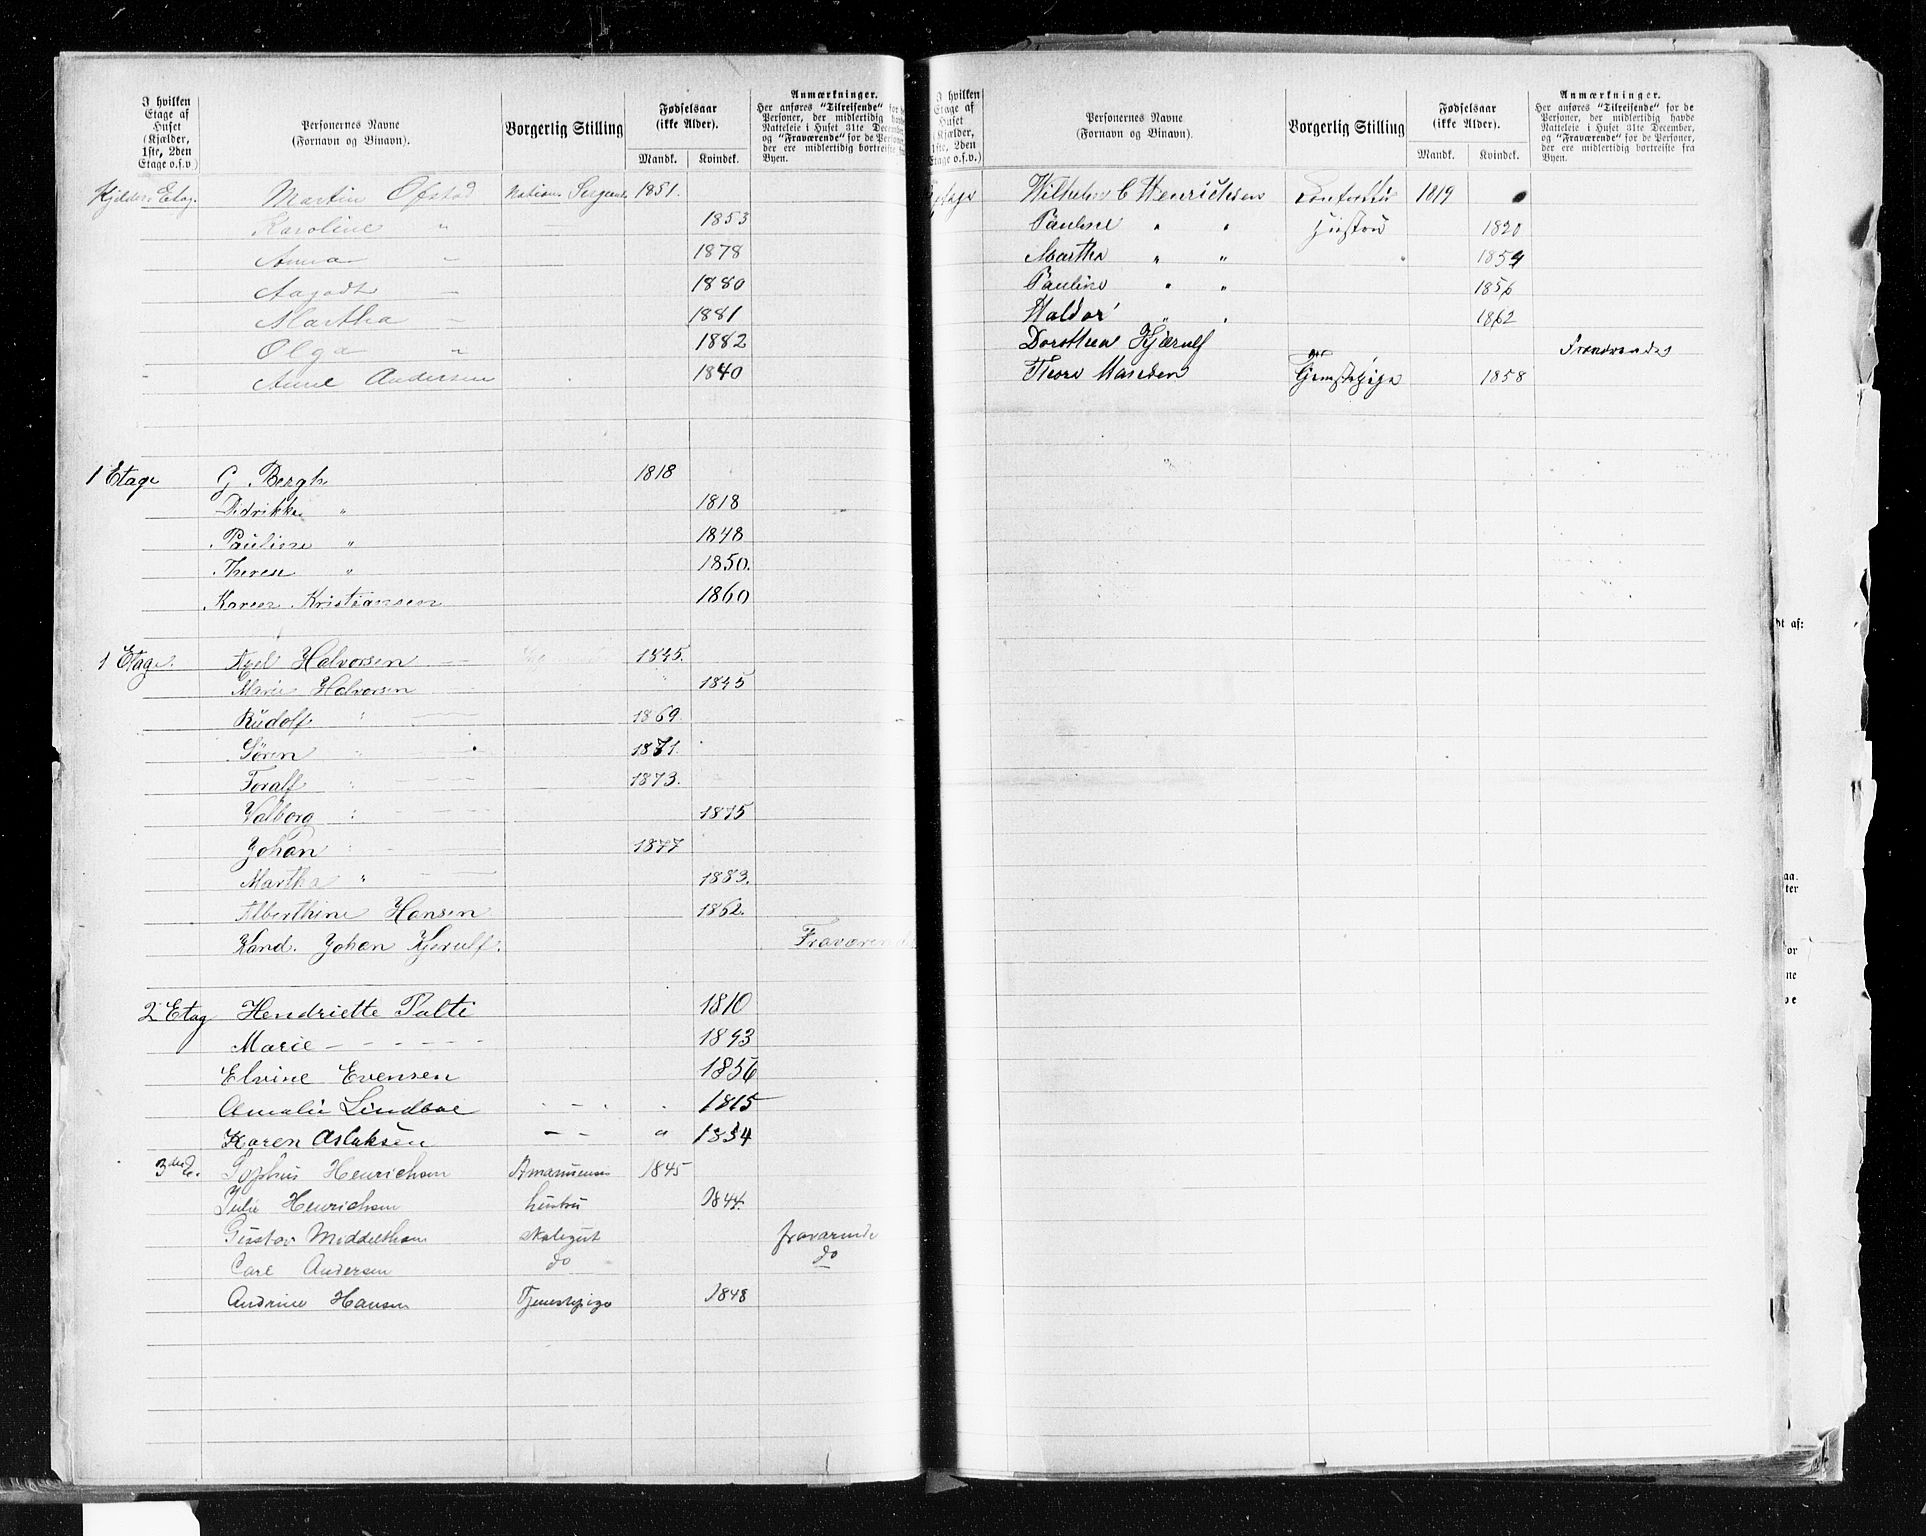 I hvilken Etage af Huset (Kjælder, 1ste, 2den Etage o.s.v.)
Personernes Navne (Fornavn og Binavn).
Borgerlig Stilling
Fødselsaar (ikke Alder).
Mandk. Kvindek.
Anmærkninger.
Her anføres "Tilreisende" for de Personer, der midlertidig havde Natteleie i Huset 31te December, og "Fraværende" for de Personer, der ere midlertidig bortreiste fra Byen.
Kjelder Etag. Martin Ofstad Nation. Sergeant 1851.
Karoline " 1853
Anna - 1878
Aagodt - 1880
Martha - 1881
Olga " 1882
Anne Andersen 1840
1 Etage G. Bergh 1818
Didrikke " 1818
Pauline " 1848
Therese " 1850.
Karen Kristiansen 1860
1 Etage. Axel Halvorsen 1845.
Marie Halvorsen 1845
Rudolf " 1869.
Søren " 1871.
Toralf " 1873.
Valborg " 1875
Johan " 1877
Martha " 1883.
Alberthine Hansen 1862.
Kand. Johan Kjerulf. Fraværende
2 Etag Hendriette Palti 1810
Marie - - - - - 1843
Elvine Evensen 1856
Amalie Lindboe 1815
Karen Aslaksen 1854
3die E. Sophus Henrichsen Amanuensis 1845
Julie Henrichsen hustru 1844.
Gustav Middelthon fraværende
Carl Andersen do do
Andrine Hansen Tjenestepige 1848
I hvilken Etage af Huset (Kjælder, 1ste, 2den Etage o.s.v.)
Personernes Navne (Fornavn og Binavn).
Borgerlig Stilling
Fødselsaar (ikke Alder).
Mandk. Kvindek.
Anmærkninger.
Her anføres "Tilreisende" for de Personer, der midlertidig havde Natteleie i Huset 31te December, og "Fraværende" for de Personer, der ere midlertidig bortreiste fra Byen.
Wilhelm C Henrichsen 1819
Pauline " " Hustru 1820
Martha " " 1854
Pauline " " 1856
Haldor " " 1862
Dorothea Kjærulf Fraværendes
Thora Madsen Tjenestepige 1858
dt af:
aa.
ter
for
ne
be